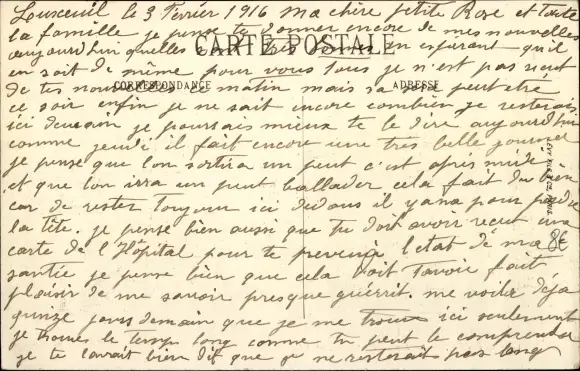 Luxeuil le 3 Février 1916 Ma chère petite Rose et toute
la famille je pense te donner encore de mes nouvelles
aujourd'hui quelles sont très bonnes en espérant qu'il
CARTE POSTALE
en soit de même pour vous tous je n'est pas reçut
CORRESPONDANCE
ADRESSE
de tes nouvelles ce matin mais sa peut etre
ce soir enfin je ne sait encore combien je resterais
ici demain je pourrais mieux te le dire aujourd'hui
comme jeudi il fait encore une très belle journée
je pense que l'on sortira un peut c'est après midi
et que l'on irra un peut ballader cela fait du bien
car de rester toujours ici dedans il y a de quoi perdre
la tête. je pense bien aussi que tu doit avoir recut une
carte de l'Hôpital pour te prevenir l'etat de ma
8€
santée je pense bien que cela doit t'avoir fait
plaisir de me savoir presque guérrit. me voila déja
quinze jours demain que je me trouve ici seulement
je trouve le temps long comme tu peut le comprendre
je te l'avait bien dit que je ne resterait pas long